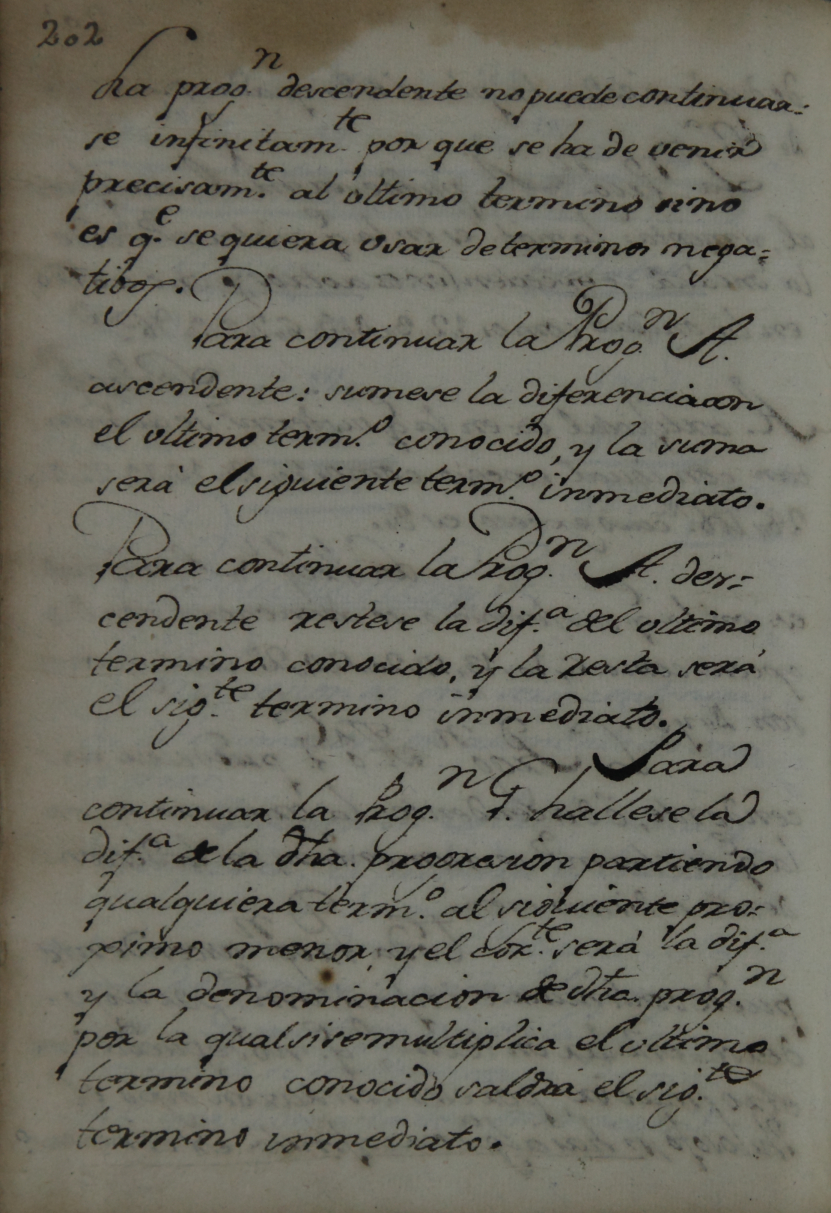 202
La prog.n descendente no puede continuar=
se infinitam.te por que se ha de venir
precisam.te al ultimo termino sino
es q.e se quiera usar de terminos nega=
tibos.
Para continuar la Prog.n A.
ascendente: sumese la diferencia con
el ultimo term.o conocido, y la suma
será el siguiente term.o inmediato.
Para continuar la Prog.n A. des=
cendente restese la dif.a del ultimo
termino conocido, y la resta será
el sig.te termino inmediato.
Para
continuar la Prog.n G. hallese la
dif.a de la dha. progresion partiendo
qualquiera term.o al siguiente pro=
ximo menor, y el cor.te será la dif.a
y la denominacion de dha. prog.n
por la qual si se multiplica el ultimo
termino conocido saldra el sig.te
termino inmediato.